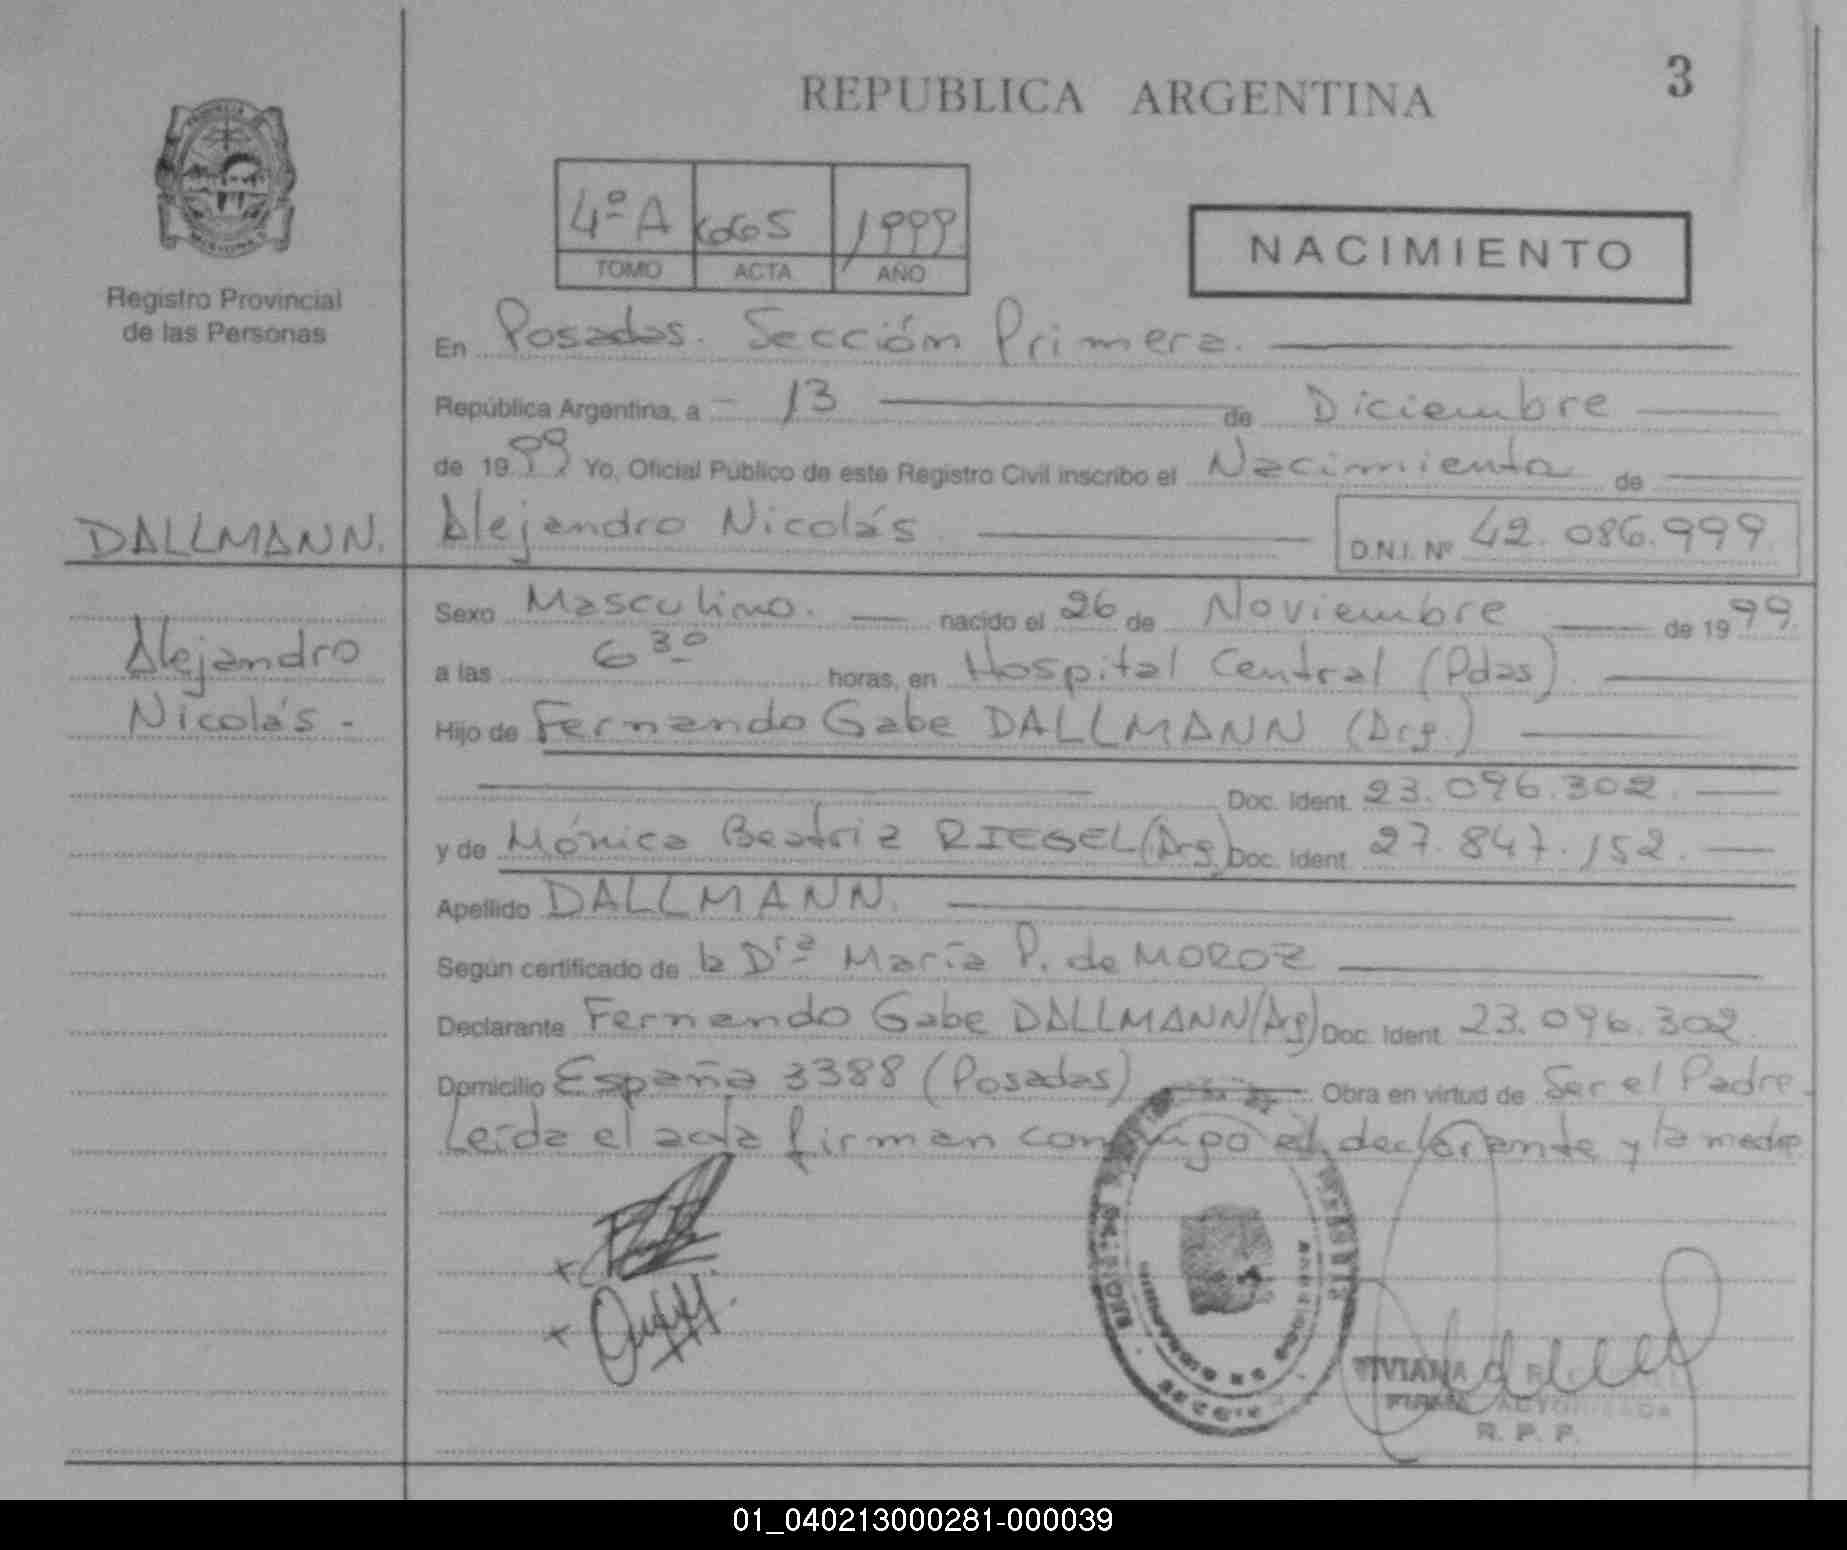 REPUBLICA ARGENTINA
3
4º A 6665 1999
TOMO ACTA AÑO
NACIMIENTO
Registro Provincial
de las Personas
En Posadas. Sección Primera.
República Argentina, a - 13 de Diciembre
de 1999 Yo, Oficial Público de este Registro Civil inscribo el Nacimiento de
DALLMANN. Alejandro Nicolás D.N.I. Nº 42.086.999
Sexo Masculino. nacido el 26 de Noviembre de 1999.
Alejandro
a las 6 30 horas, en Hospital Central (Pdas).
Nicolás -
Hijo de Fernando Gabe DALLMANN (Arg.)
Doc. Ident. 23.096.302.
y de Mónica Beatriz RIEGEL (Arg) Doc. Ident. 27.847.152.
Apellido DALLMANN.
Según certificado de la Dra María P. de MOROZ
Declarante Fernando Gabe DALLMANN (Arg) Doc. Ident. 23.096.302.
Domicilio España 3388 (Posadas) Obra en virtud de Ser el Padre.
Leída el acta firman conmigo el declarante y la madre
VIVIANA
FIRMA AUTORIZADA
R. P. P.
01_040213000281-000039